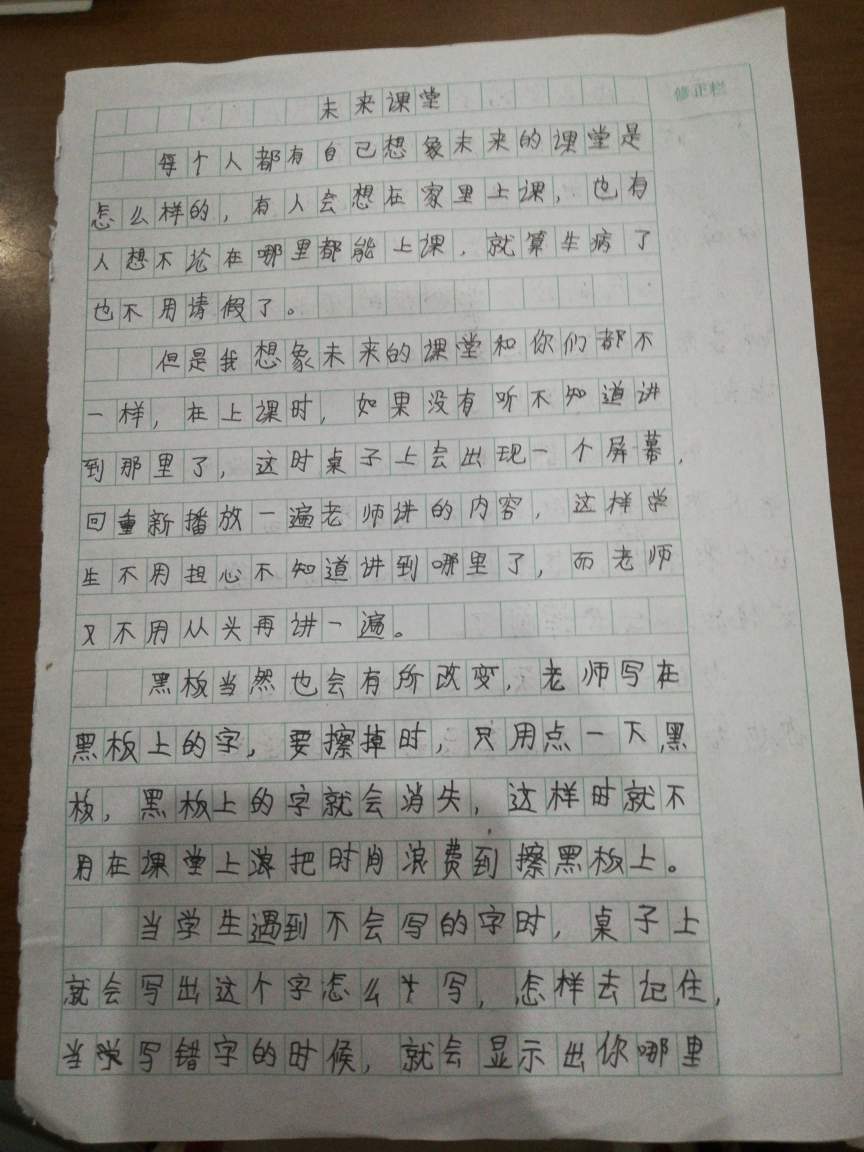 未来课堂
修正栏
每个人都有自己想象未来的课堂是
怎么样的，有人会想在家里上课，也有
人想不论在哪里都能上课，就算生病了
也不用请假了。
但是我想象未来的课堂和你们都不
一样，在上课时，如果没有听不知道讲
到那里了，这时桌子上会出现一个屏幕，
回重新播放一遍老师讲的内容，这样学
生不用担心不知道讲到哪里了，而老师
又不用从头再讲一遍。
黑板当然也会有所改变，老师写在
黑板上的字，要擦掉时，只用点一下黑
板，黑板上的字就会消失，这样时就不
用在课堂上浪把时肖浪费到擦黑板上。
当学生遇到不会写的字时，桌子上
就会写出这个字怎么写，怎样去记住，
当写错字的时候，就会显示出你哪里